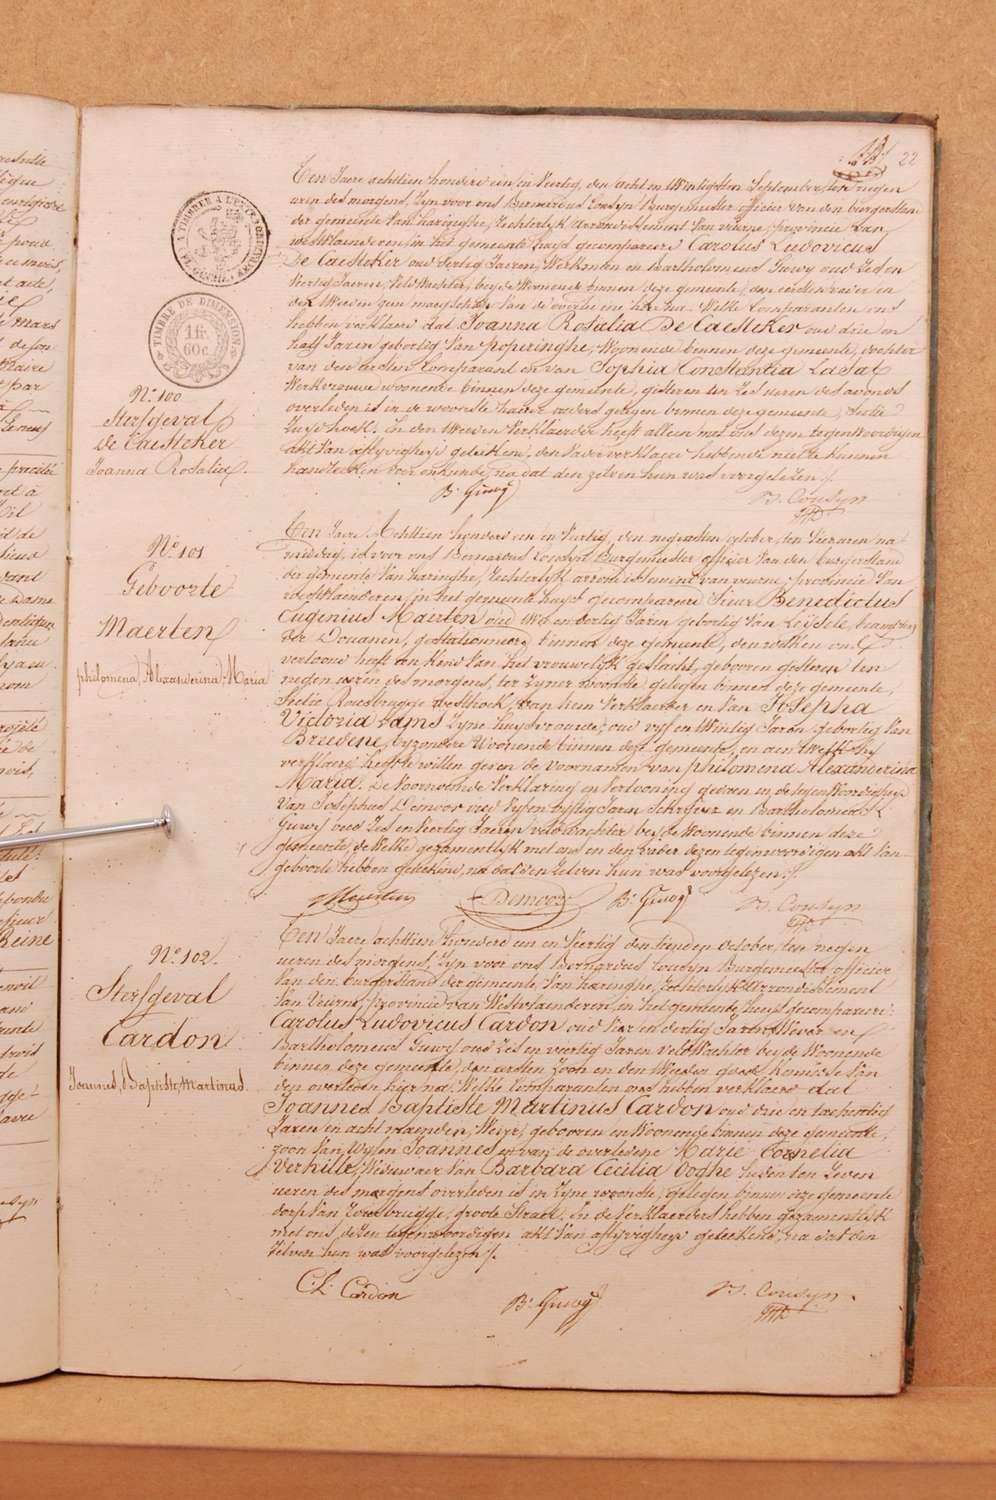 22
TIMBRE DE DIMENSION
1 fr.
60 c.
N° 100
Sterfgeval
de Caesteker
Joanna Rosalia
Ten Jaere achttien honderd een en Veertig, den acht en twintigsten September, ten negen
uren des morgens, Zyn voor ons Bernardus Cousyn Burgemeester officier van den burgerstand
der gemeente van haringhe, Rechterlyk arrondissement van veurne, provincie van
westvlaenderen in het gemeente huys gecompareerd Carolus Ludovicus
De Caesteker oud Vertig Jaeren, Werkman en Bartholomeus Guwy oud Zes en
Veertig Jaeren, Veldwachter, beyde Woonende binnen deze gemeente, den eersten vader en
den tweeden van de overledene hier na. Welke Comparanten ons
hebben verklaert dat Joanna Rosalia De Caesteker oud drie en
half Jaren gebortig van poperinghe, Woonende binnen deze gemeente, dochter
van den eersten Comparant en van Sophia Constantia Lasat
Werkvrouwe woonende binnen deze gemeente, gisteren ten Zes uren des avonds
overleden is in de woonste haerer ouders gelegen binnen deze gemeente, Sectie
hoek. En den tweeden Verklaerder heeft alleen met ons dezen tegenwoordigen
akt van aflyvigheyd geteekend, den vader verklaert hebbende niet te kunnen
handteeken voor onkunde, na dat den zelven hun was voorgelezen ./.
B. Guwy
B. Cousyn
N° 101
Geboorte
Maerten
philomena, Alexanderina, Maria
Ten Jaere Achttien honderd een en Veertig, den negensten october, ten vier uren na
middag, is voor ons Bernardus Cousyn Burgemeester officier van den burgerstand
der gemeente van haringhe, Rechterlyk arrondissement van veurne, provincie van
westvlaenderen, in het gemeente huys gecompareerd Sieur Benedictus
Eugenius Maerten oud en dertig Jaren gebortig van Leysele,
der Douanen, gestationneerd binnen deze gemeente, den welken ons
vertoond heeft een kind van het vrouwelyk geslacht, geboren gisteren ten
negen uren des morgens, ter zyner woonste gelegen binnen deze gemeente,
Sectie Rousbrugge westhoek, van hem Verklaerder en van Josepha
Victoria Rams Zyne huysvrouwe, oud vyf en twintig Jaren gebortig van
Breedene, byzondere Woonende binnen deze gemeente, en aen welk hy
verklaert heeft te willen geven de voornamen van philomena Alexanderina
Maria. De Voornoemde Verklaring en Vertooning gedaen in de tegenwoordigheyd
van Josephus Demoor oud Vyf en vyftig Jaren Schryver en Bartholomeus
Guwy oud Zes en Veertig Jaeren veldwachter beyde Woonende binnen deze
gemeente, de Welke gezamentlyk met ons en den vader dezen tegenwoordigen akt van
geboorte hebben geteekend, na dat den Zelven hun was voorgelezen ./.
Maerten
Demoor
B. Guwy
B. Cousyn
N° 102
Sterfgeval
Cardon
Joannes, Baptiste, Martinus
Ten Jaere achttien honderd een en Veertig den tienden October, ten negen
uren des morgens, Zyn voor ons Bernardus Cousyn Burgemeester officier
van den burgerstand der gemeente van haringhe, Rechterlyk Arrondissement
van Veurne, provincie van Westvlaenderen, in het gemeente huys gecompareerd
Carolus Ludovicus Cardon oud vier en dertig Jaren Wever en
Bartholomeus Guwy oud Zes en veertig Jaren veldwachter beyde Woonende
binnen deze gemeente, den eersten Zoon en den tweeden goede kennisse van
den overleden hier na, Welke Comparanten ons hebben verklaert dat
Joannes Baptiste Martinus Cardon oud drie en tachentig
Jaren en acht maenden, Wever, geboren en Woonende binnen deze gemeente,
zoon van wylen Joannes en van de overledene Marie Cornelia
Verhille, Weduwaer van Barbara Cecilia Doghe heden ten Zeven
uren des morgens overleden is in Zyne woonste, gelegen binnen deze gemeente
dorp van Rousbrugge, groote Straet, En de Verklaerders hebben gezamentlyk
met ons, dezen tegenwoordigen akt van aflyvigheyd geteekend, na dat den
Zelven hun was voorgelezen ./.
C. L. Cardon
B. Guwy
B. Cousyn